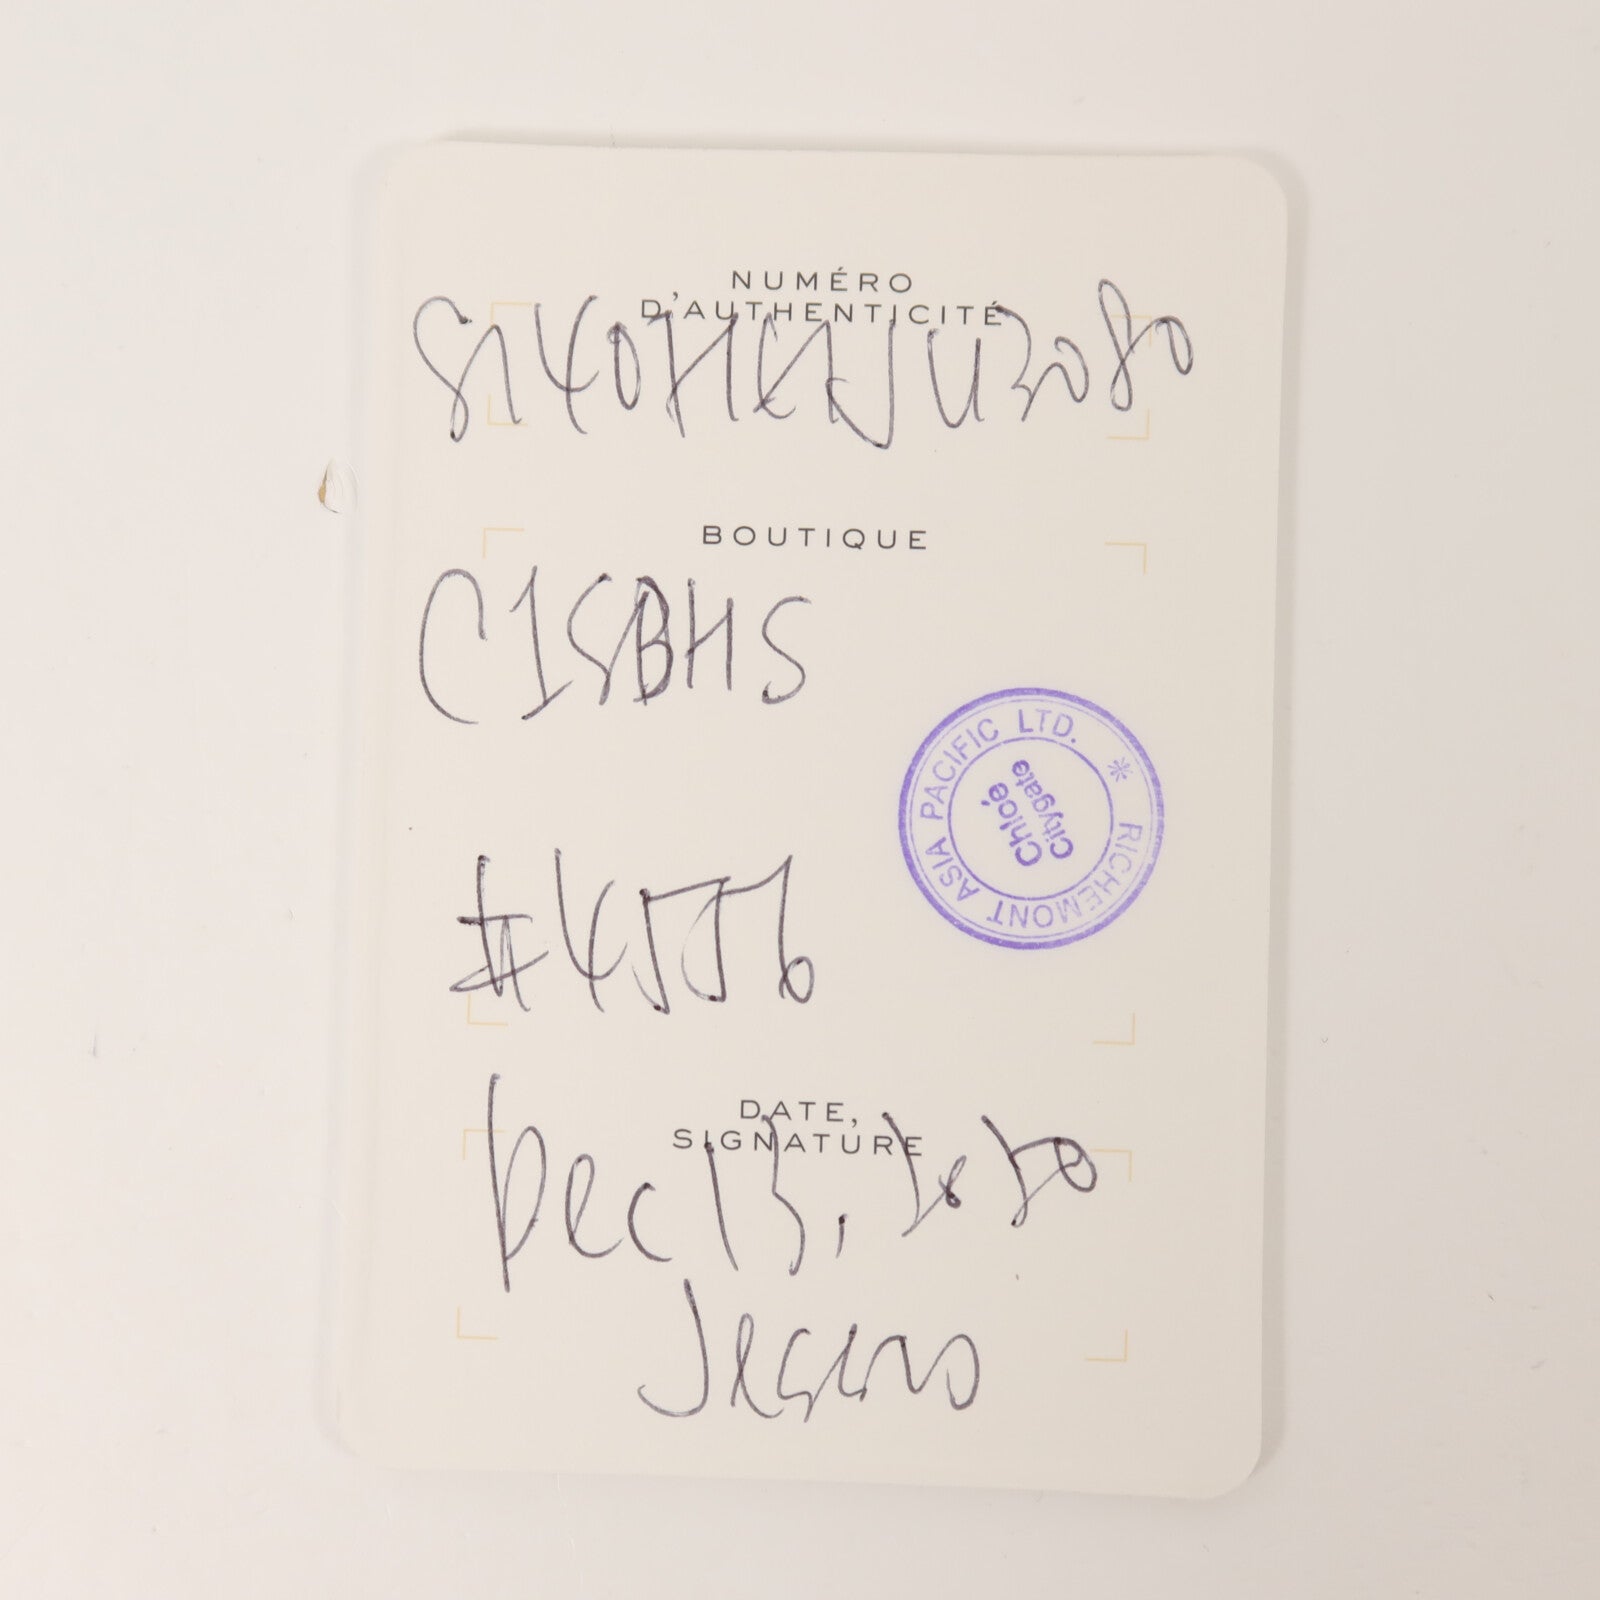 NUMÉRO
D'AUTHENTICITÉ
BOUTIQUE
C1SBHS
RICHEMONT ASIA PACIFIC LTD. *
Chloé
Citygate
#4556
DATE,
SIGNATURE
Dec 13, 2020